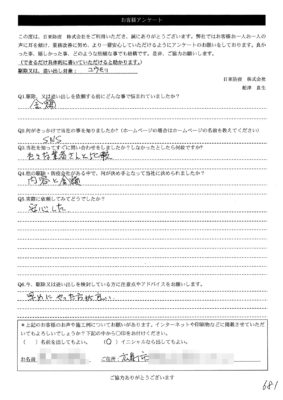 お客様アンケート
この度は、日東防疫 株式会社をご利用いただき、誠にありがとうございます。弊社ではお客様お一人お一人の
声に耳を傾け、業務改善に努め、より一層安心していただけるようにアンケートのお願いをしております。良か
った事、嬉しかった事、どのような些細な事でも結構です。是非、ご協力お願いします。
(できるだけ具体的に書いていただけると助かります。)
駆除又は、追い出し対象: コウモリ
日東防疫 株式会社
船津 良生
Q1.駆除、又は追い出しを依頼する前にどんな事で悩まれていましたか?
金額
Q2.何がきっかけで当社の事を知りましたか?(ホームページの場合はホームページの名前を教えてください)
SNS
Q3.当社を知ってすぐに問い合わせをしましたか?しなかったとしたら何故ですか?
他を業者さんと比較
Q4.他の駆除・防疫会社がある中で、何が決め手となって当社に決められましたか?
内容と金額
Q5.実際に依頼してみてどうでしたか?
安心した
Q6.今、駆除又は追い出しを検討している方に注意点やアドバイスをお願いします。
早めにやった方が良い
*上記のお客様のお声や施工例についてお願いがあります。インターネットや印刷物などに掲載させていただ
いてもよろしいでしょうか?下記の中から〇印をお付けください。
( )名前を出してもよい。 (〇)イニシャルなら出してもよい。
お名前 ご住所 広島市
ご協力ありがとうございます
681